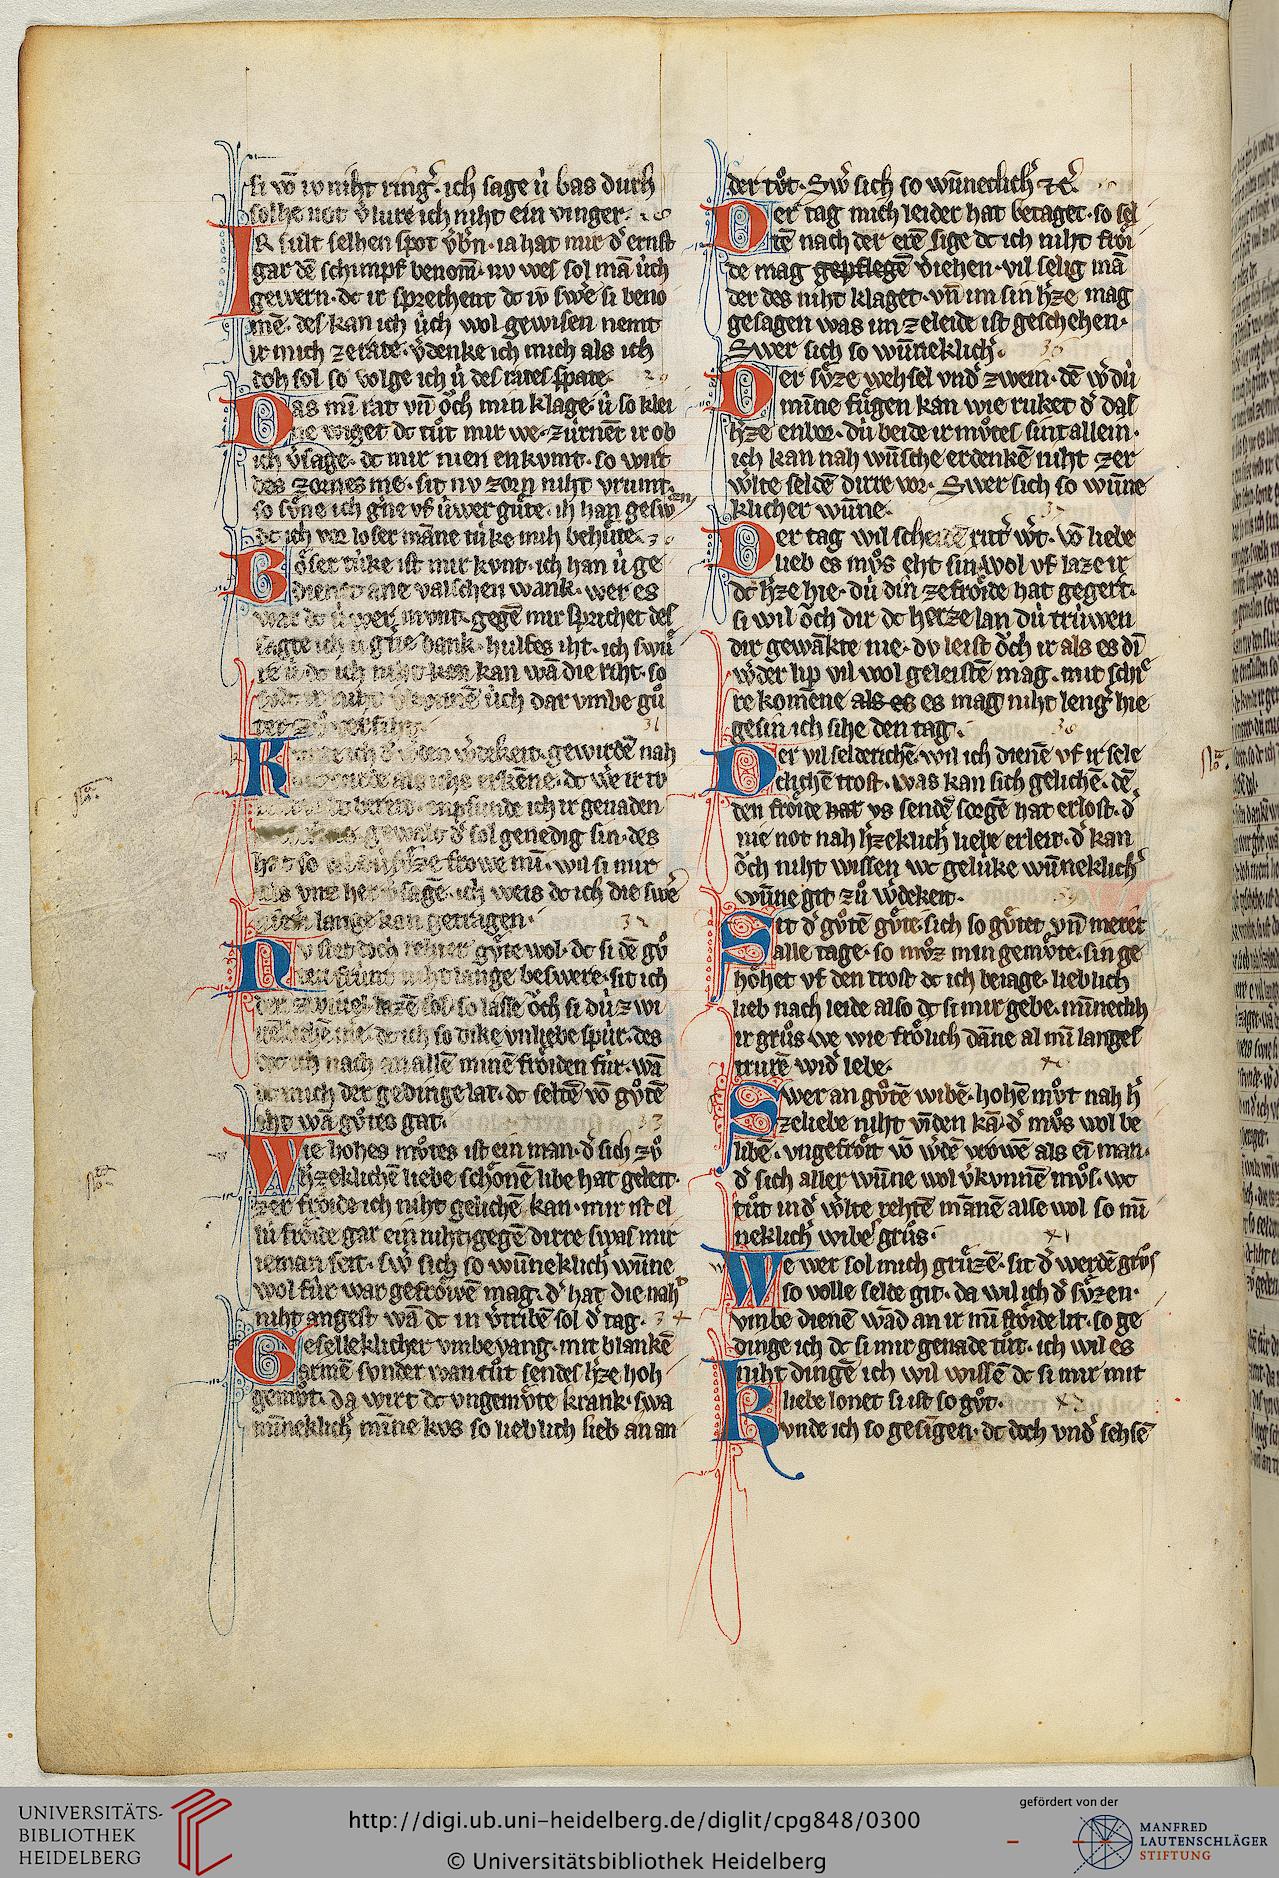 si vō iv niht ringˀ. ich sage ú bas durh
solhe not v̾lure ich niht ein vinger.
IR sult selben spot v̾bˀn. ia hat mir dˀ ernst
gar dē schimpf benom̄. nv wes sol mā úch
gewern. dc ir sprechent dc iv swˀe si beno
mē. des kan ich úch wol gewisen nemt
ir mich ze rate. v̾denke ich mich als ich
doh sol so volge ich ú des rates spate.
Das mī rat vn̄ oͮch min klage. ú so klei
ne wiget dc tuͦt mir we. zúrnēt ir ob
ich v̾sage. dc mir nien enkvmt. so wirt
des zornes me. sit nv zorn niht vrumt.
so soͤne ich gˀne vf úwer guͤte. ih han geswˀ
dc ich vor loser māne túke mih behuͤte. 30
Boͤser túke ist mir kvnt. ich han ú ge
dienet ane valschen wank. wer es
war dc úwer mvnt. gegē mir sprichet des
sagte ich ú gˀne dank. hulfes iht. ich swuˀ
kan wā die riht. so
úch dar vmbe guͦ
31
wˀdekeit. gewirdē nah
erkēne. dc wˀe ir
enpfunde ich ir genaden
gewalt dˀ sol genedig sin. des
hˀze frowe mī. wil si mir
sagē. ich weis dc ich die swˀe
lange kan getragen. 32
Nv guͤte wol. dc si dē guͦ
niht lange beswere. sit ich
den zwivel sol. so lasse oͮch si dú zwi
dc ich so dike vnliebe spúr. des
ich nach an allē minē froͤiden fúr. wā
dc mich der gedinge lat. dc seltē vō guͦtē
iht wā guͦtes gat. 33
Wie hohes muͦtes ist ein man. dˀ sich zuͦ
hˀzeklichē liebe schoͤnē libe hat geleit.
zer froͤide ich niht gelichē kan. mir ist el
lú froͤide gar ein niht. gegē dirre swas mir
ieman seit. swˀ sich so wūneklichˀ wūne
wol fúr war gefroͤwē mag. dˀ hat die nah
niht angest wā dc in v̾tribē sol dˀ tag. 34
Geselleklicher vmbevang. mit blankē
armē svnder wan tuͦt sendes hˀze hoh
gemuͦt. da wirt dc vngemuͤte krank. swa
mīneklich mīne kvs so lieblich lieb an an
der tuͦt. Swˀ sich so wūneclichˀ ⁊c̄.
Der tag mich leider hat betaget. so sel
tē nach der erē sige dc ich niht froͤi
de mag gepflegē v̾iehen. vil selig mā
der des niht klaget. vn̄ im sin hˀze mag
gesagen was im ze leide ist geschehen.
Swer sich so wūneklichˀ. 36
Der suͤze wehsel vndˀ zwein. dē wˀdú
minne fuͤgen kan wie ruket dˀ das
hˀze enbor. dú beide ir muͦtes sint allein.
ich kan nah wūsche erdenkē niht zer
wˀlte seldē dirre vor. Swer sich so wūne
klicher wūne. 37
Der tag wil scheidē ritˀ wˀt. vō liebe
lieb es muͦs eht sin. wol vf laze ir
dc hˀze hie. dú din ze froͤide hat gegert.
si wil oͮch dir dc herze lan dú trúwen
dir gewākte nie. dv leist oͮch ir als es dī
wˀder lip vil wol geleistē mag. mit schie
re komēne als es es mag niht lengˀ hie
gesin ich sihe den tag. 38
Der vil selderichē. wil ich dienē vf ir sele
clichē trost. was kan sich gelichē. dē
den froͤide hat vs sendē sorgē hat erlost. dˀ
nie not nah hˀzeklichˀ liebe erleit. dˀ kan
oͮch niht wissen wc gelúke wūneklichˀ
wūne git zuͦ wˀdekeit. 39
Sit dˀ guͦtē guͤte. sich so guͤtet vn̄ meret
alle tage. so muͦz min gemuͤte. sin ge
hoͤhet vf den trost dc ich beiage. lieblich
lieb nach leide also dc si mir gebe. mīneclih
ir gruͦs. we wie froͤlich dāne al mī langes
trurē widˀ lebe. 40
Swer an guͦtē wibē. hohē muͦt nah hˀ
zeliebe niht vīden kā. dˀ muͦs wol be
libē. vngefroͤit vō wˀdē vrowē als eī man.
dˀ sich aller wūne wol v̾kvnnē muͦs. wc
tuͦt indˀ wˀlte rehtē mānē alse wol so mī
neklichˀ wibes gruͦs. 41
We wer sol mich gruͤzē. sit dˀ werdē gruͦs
so volle selde git. da wil ich dˀ suͤzen.
vmbe dienē wād an ir mī froͤide lit. so ge
dinge ich dc si mir genade tuͦt. ich wil es
niht dingē ich wil wissē dc si mir mit
liebe lonet si ist so guͦt. 42
Kvnde ich so gesīgen. dc doch vndˀ sehsē
UNIVERSITÄTS-
BIBLIOTHEK
HEIDELBERG
http://digi.ub.uni-heidelberg.de/diglit/cpg848/0300
© Universitätsbibliothek Heidelberg
gefördert von der
MANFRED
LAUTENSCHLÄGER
STIFTUNG